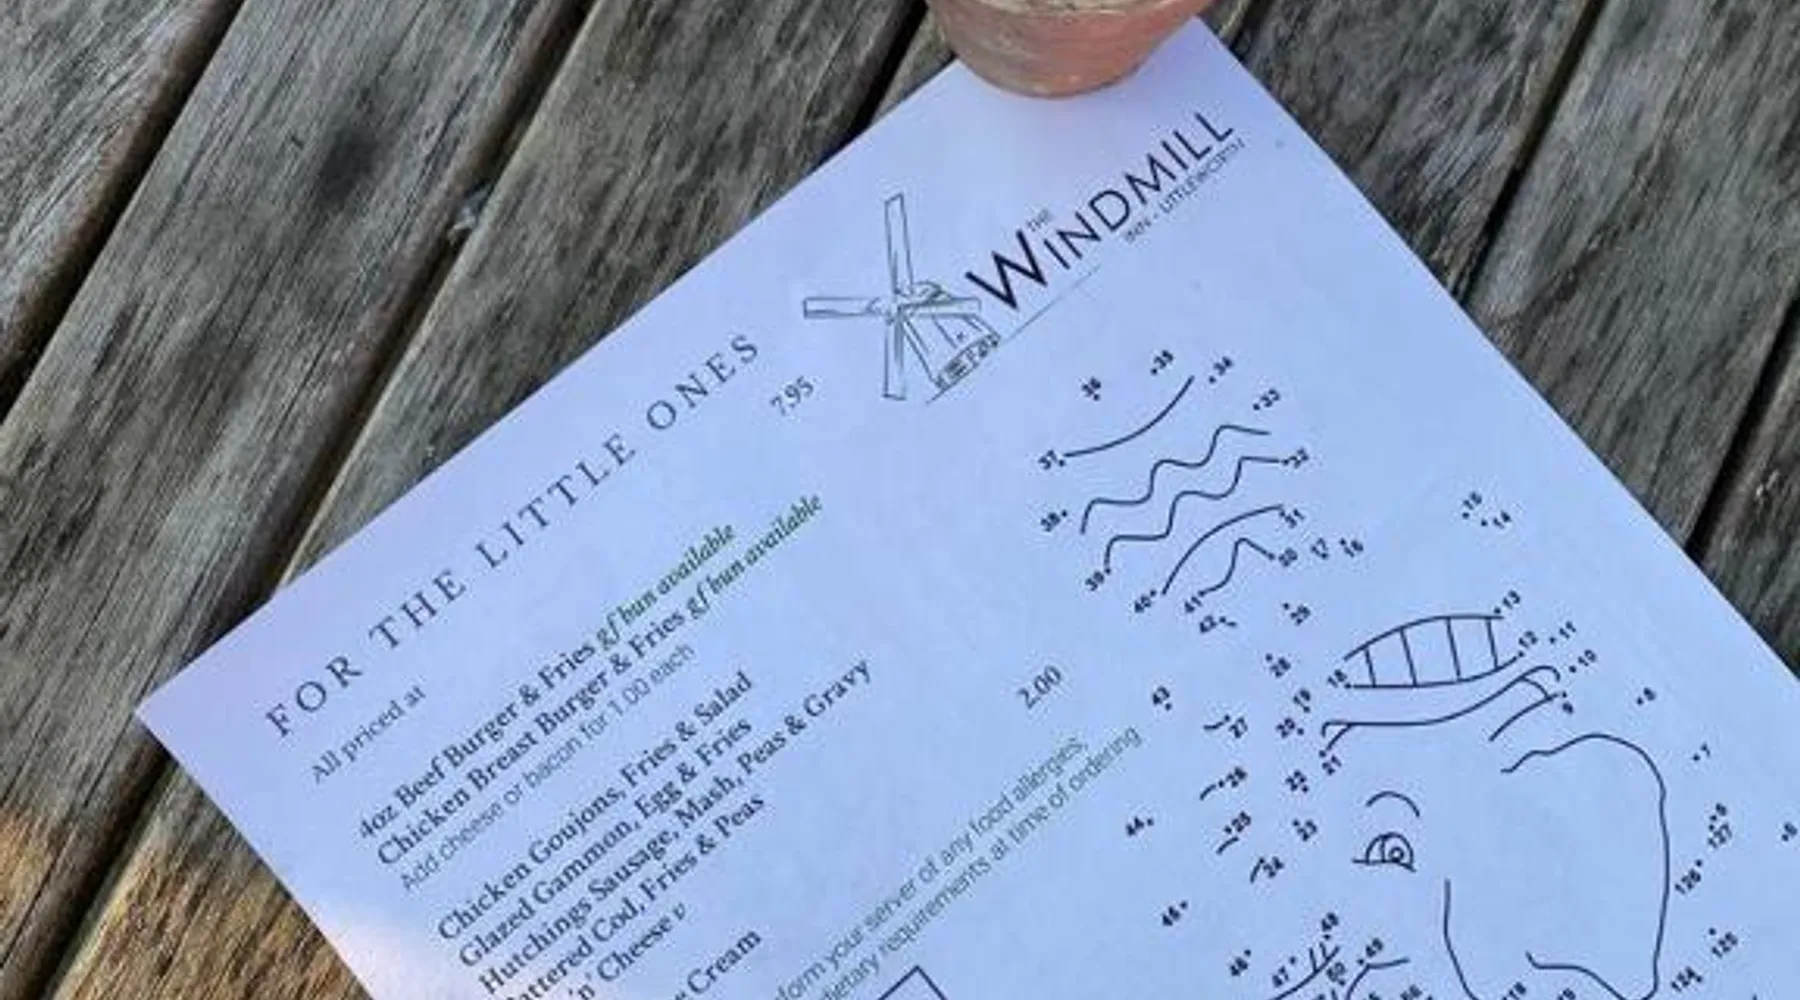 THE
WINDMILL
INN - LITTLEWORTH
FOR THE LITTLE ONES
All priced at 7.95
4oz Beef Burger & Fries gf bun available
Chicken Breast Burger & Fries gf bun available
Add cheese or bacon for 1.00 each
Chicken Goujons, Fries & Salad
Glazed Gammon, Egg & Fries
Hutchings Sausage, Mash, Peas & Gravy
attered Cod, Fries & Peas
'n' Cheese v
Cream 2.00
form your server of any food allergies,
dietary requirements at time of ordering
36 35 34
33
37 32
38 31
39 30 17 16
40 41
42 29
15
14
13
12 11
10
9
8
7
28 18
19
43 27 20
21
26 22
44 25 23
24
5
127
6
126
46 48
125
47 49
124
50